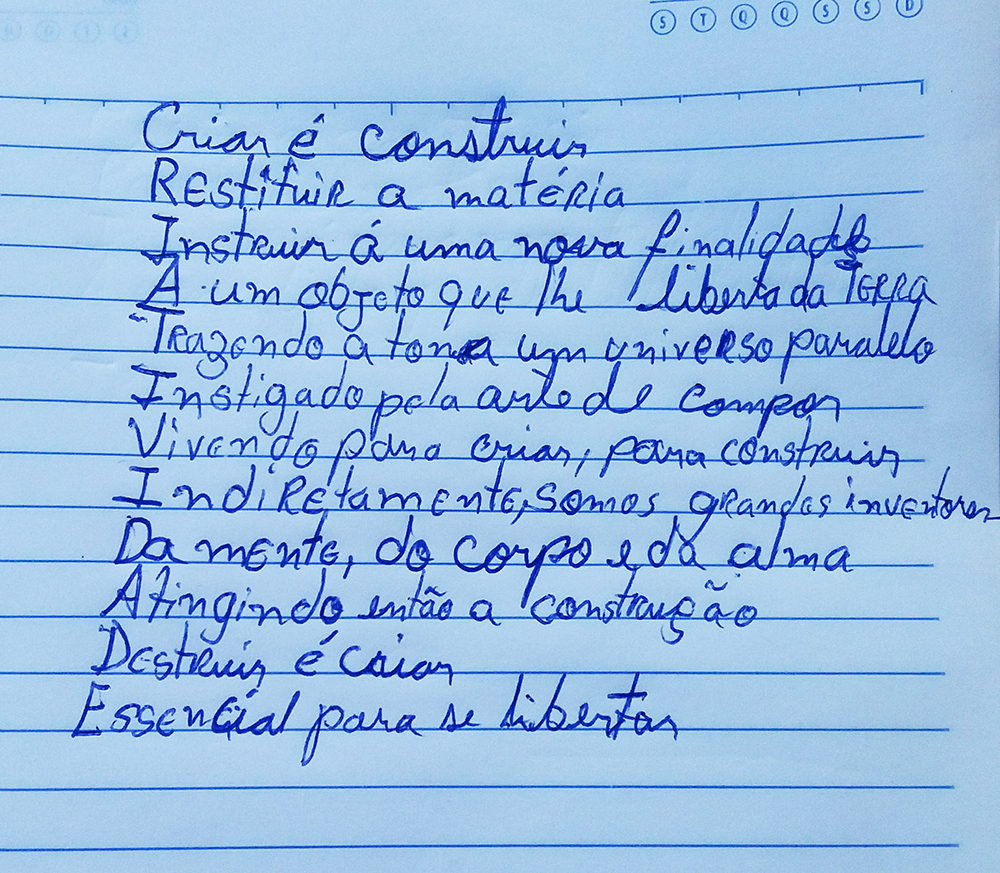 S T Q Q S S D
Criar é construir
Restituir a matéria
Instruir á uma nova finalidade
A um objeto que lhe liberta da Terra
Trazendo a tona um universo paralelo
Instigado pela arte de compor
Vivendo para criar, para construir
Indiretamente, somos grandes inventores
Da mente, do corpo e da alma
Atingindo então a construção
Destruir é criar
Essencial para se libertar